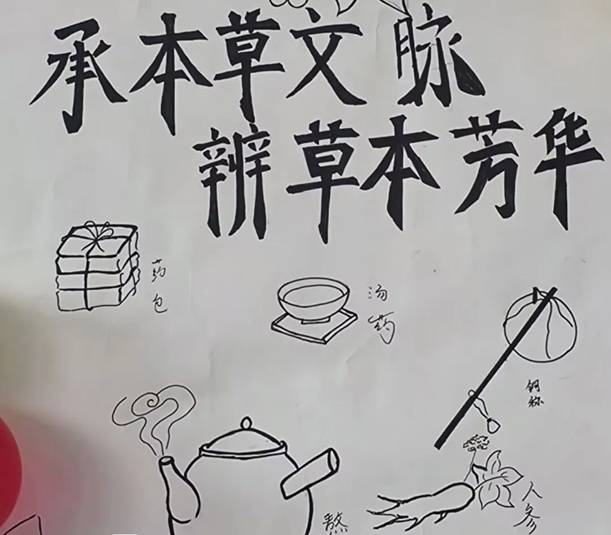 承本草文脉
辨草本芳华
药包
汤药
铜称
熬
人参